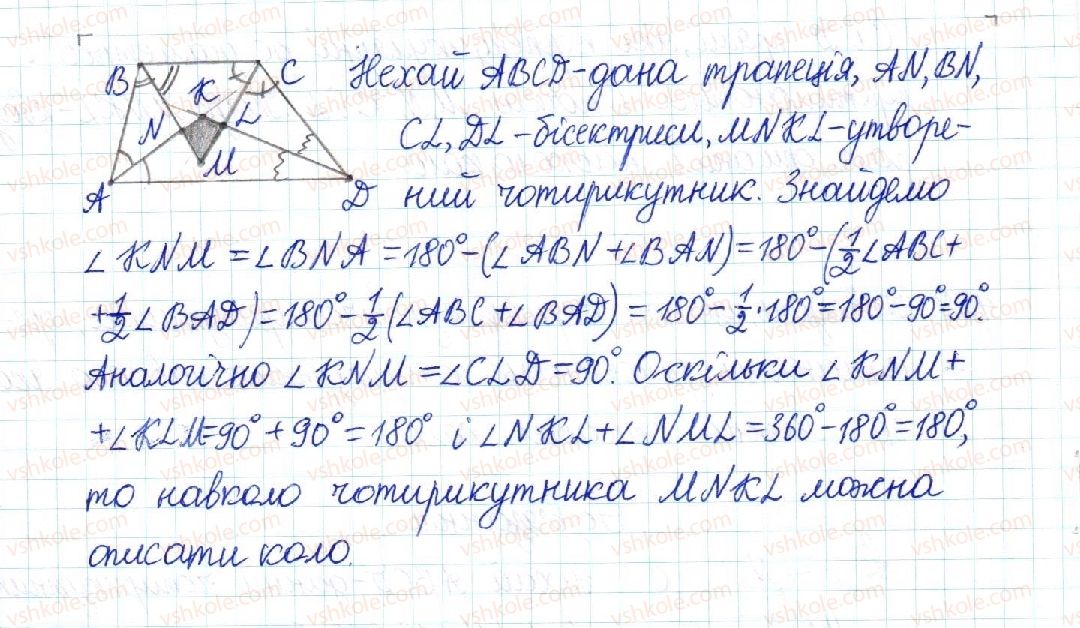 B C K N L M A D
Нехай ABCD-дана трапеція, AN, BN,
CL, DL-бісектриси, MNKL-утворе-
ний чотирикутник. Знайдемо
∠KNM = ∠BNA = 180° - (∠ABN + ∠BAN) = 180° - (1/2 ∠ABC +
+ 1/2 ∠BAD) = 180° - 1/2 (∠ABC + ∠BAD) = 180° - 1/2 · 180° = 180° - 90° = 90°.
Аналогічно ∠KNM = ∠CLD = 90°. Оскільки ∠KNM +
+ ∠KLM = 90° + 90° = 180° і ∠NKL + ∠NML = 360° - 180° = 180°,
то навколо чотирикутника MNKL можна
описати коло.
vshkole.com